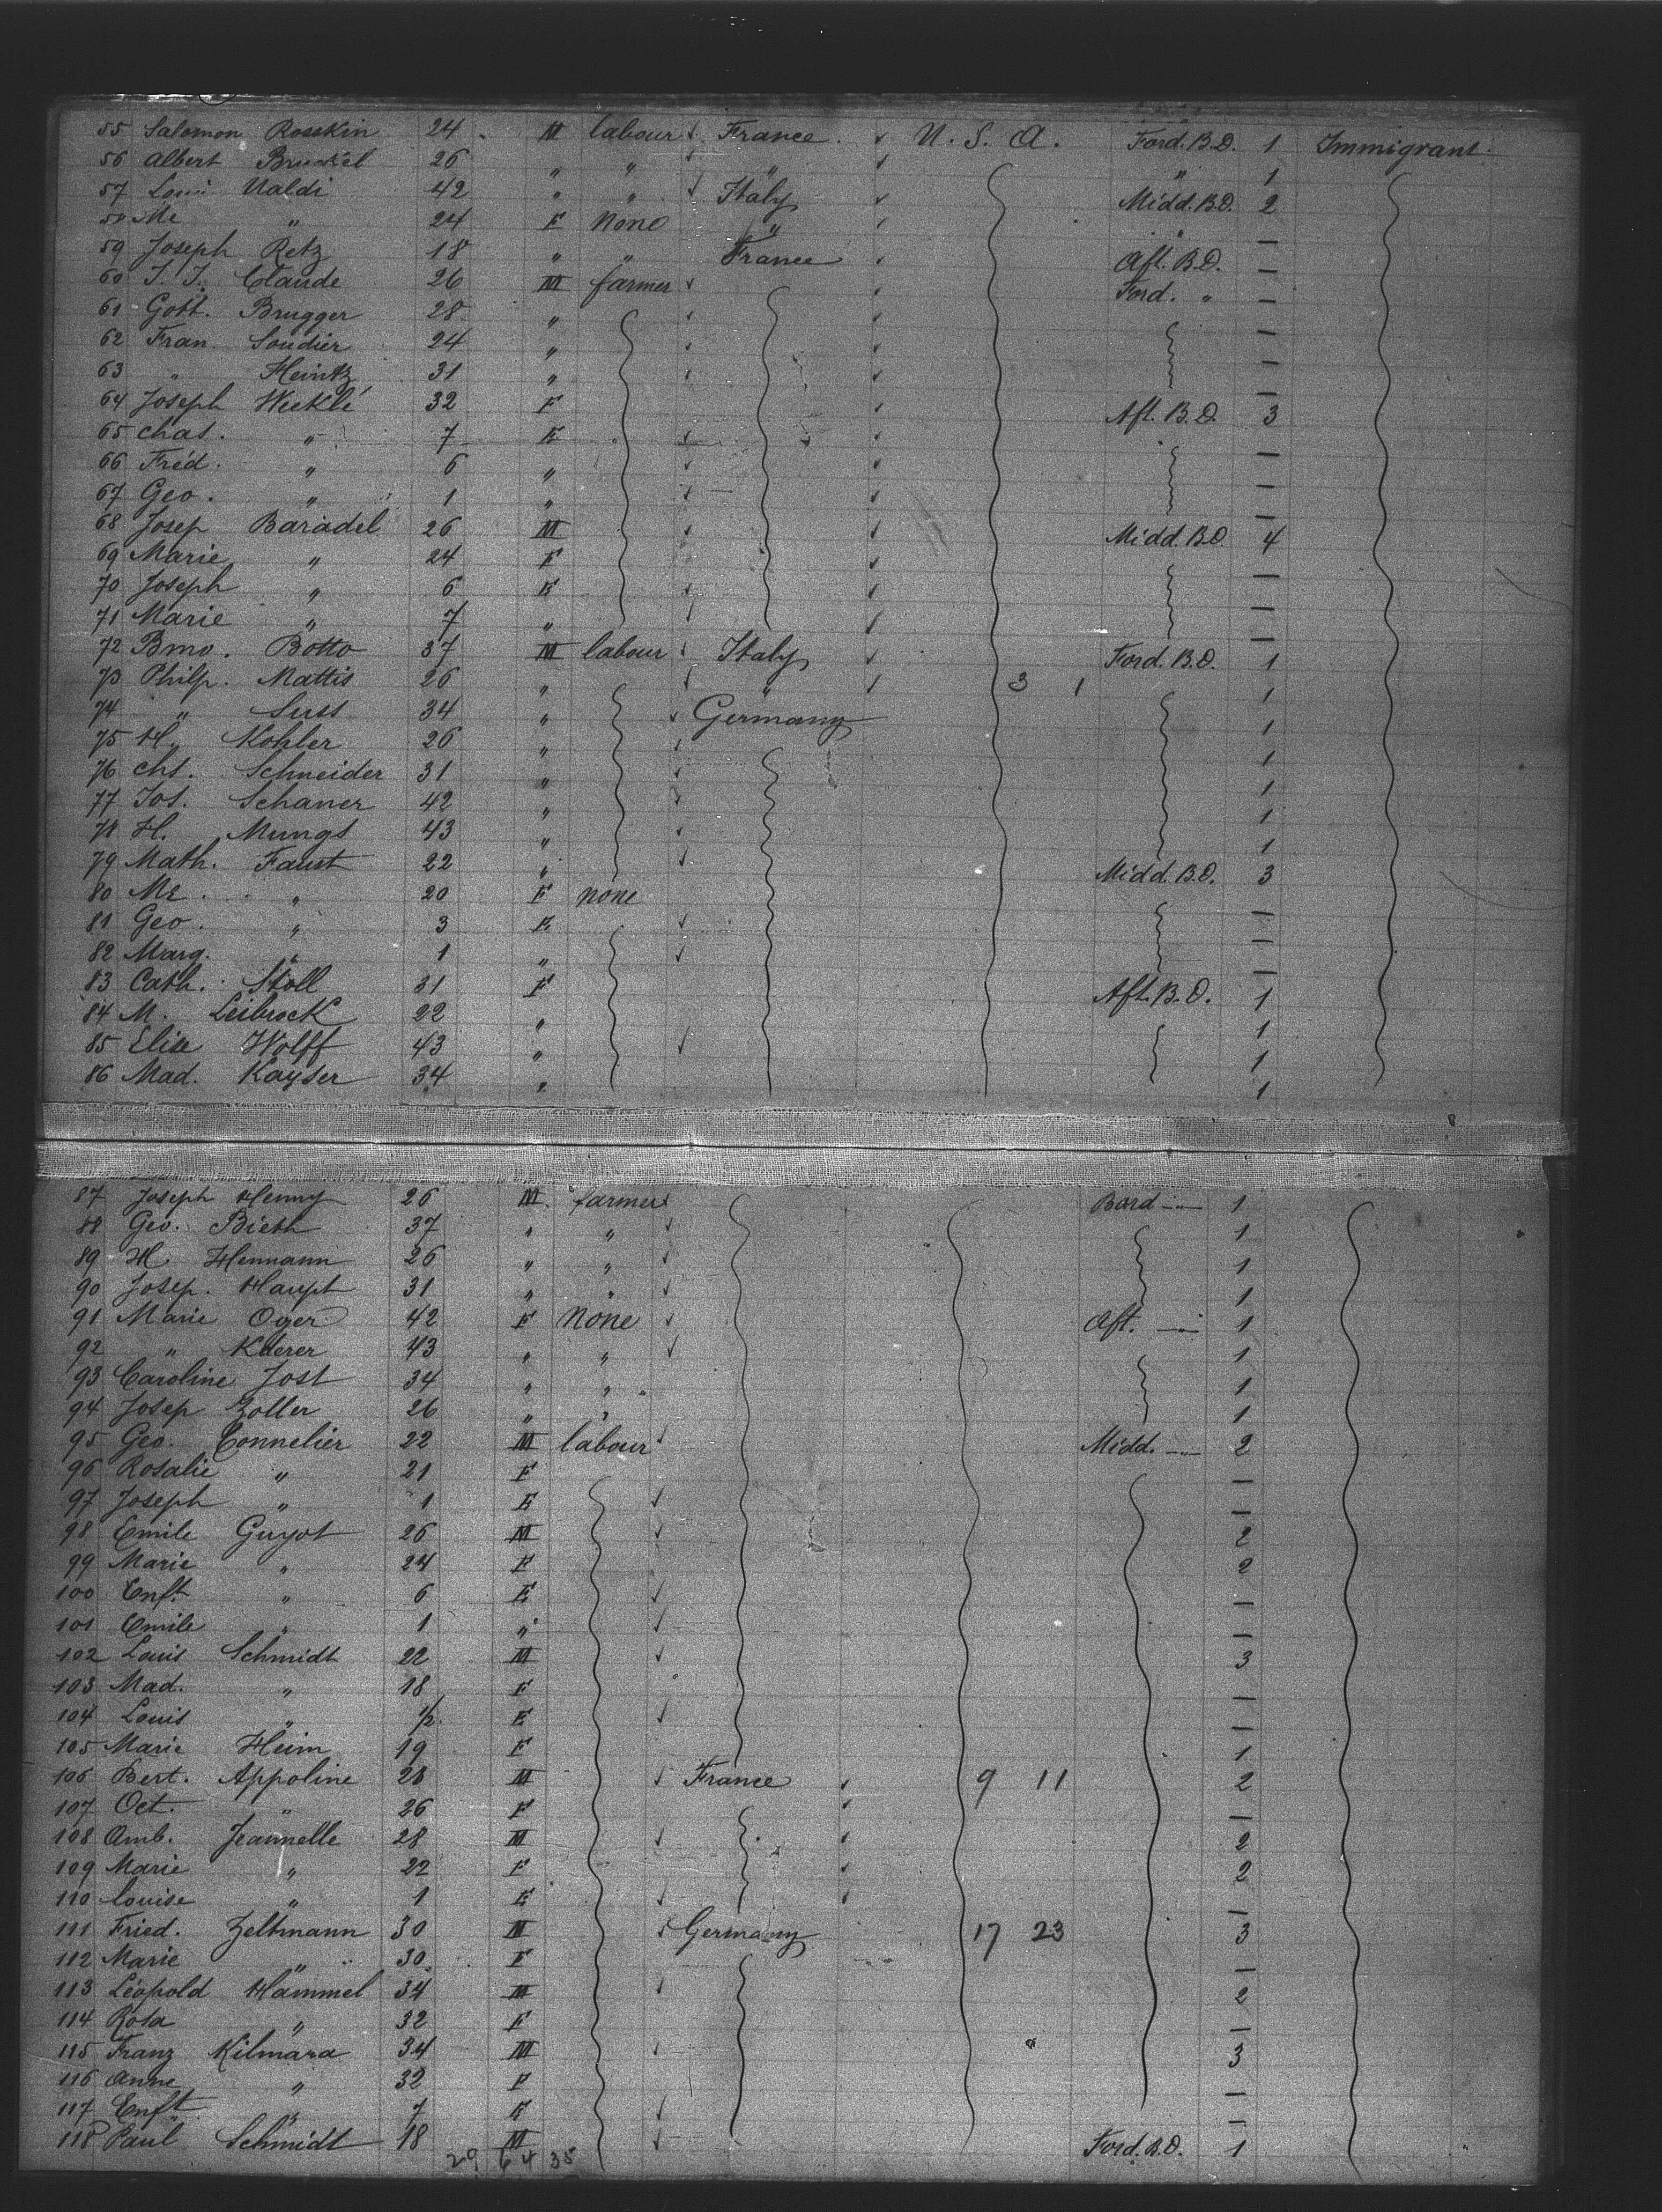 55 Salomon Rosskin 24 M labour France U. S. A. Ford. B.D. 1 Immigrant
56 Albert 26 " " " " 1
57 Loui Naldi 42 " " Italy Midd. B.D. 2
58 Me " 24 F none " " —
59 Joseph Retz 18 " " France Aft. B.D. —
60 J. J. Claude 26 M farmer Ford. " —
61 Gott. Brugger 28 " —
62 Fran. Soudier 24 " —
63 " Heintz 31 " —
64 Joseph Wecklé 32 F Aft. B.D. 3
65 Chas. " 7 E —
66 Fréd. " 6 " —
67 Geo. " 1 " —
68 Josep Baradel 26 M Midd. B.D. 4
69 Marie " 24 F —
70 Joseph " 6 E —
71 Marie " 7 " —
72 Bmo. Botto 37 M labour Italy Ford. B.D. 1
73 Philp. Mattis 26 " " 3 1 1
74 " Suss 34 " Germany 1
75 H. Kohler 26 " 1
76 Chs. Schneider 31 " 1
77 Jos. Schaner 42 " 1
78 H. Mungs 43 " 1
79 Math. Faust 22 " Midd. B.D. 3
80 Me. " 20 F none —
81 Geo. " 3 E —
82 Marg. " 1 " —
83 Cath. Stoll 31 F Aft. B.D. 1
84 M. Leibrock 22 " 1
85 Elise Wolff 43 " 1
86 Mad. Kayser 34 " 1
87 Joseph Henny 26 M. farmer Bard -"- 1
88 Geo. Bieth 37 " " 1
89 H. Hermann 26 " " 1
90 Josep. Haupt 31 " " 1
91 Marie Oger 42 F None Aft. -"- 1
92 " 43 " " 1
93 Caroline Jost 34 " " 1
94 Josep Zoller 26 " " 1
95 Geo. Tonnelier 22 M labour Midd. -"- 2
96 Rosalie " 21 F —
97 Joseph " 1 E —
98 Emile Guyot 26 M 2
99 Marie " 24 F 2
100 Enft. " 6 E —
101 Emile " 1 " —
102 Louis Schmidt 22 M 3
103 Mad. " 18 F —
104 Louis " 1/2 E —
105 Marie Heim 19 F 1
106 Bert. Appoline 28 M France 9 11 2
107 Oct. " 26 F —
108 Amb. Jeannelle 28 M 2
109 Marie " 22 F 2
110 Louise " 1 E —
111 Fried. Zeltmann 30 M Germany 17 23 3
112 Marie " 30 F —
113 Léopold Hammel 34 M 2
114 Rosa " 32 F —
115 Franz Kilmara 34 M 3
116 Anne " 32 F —
117 Enft. " 7 E —
118 Paul Schmidt 18 M Ford. B.D. 1
29 64 35